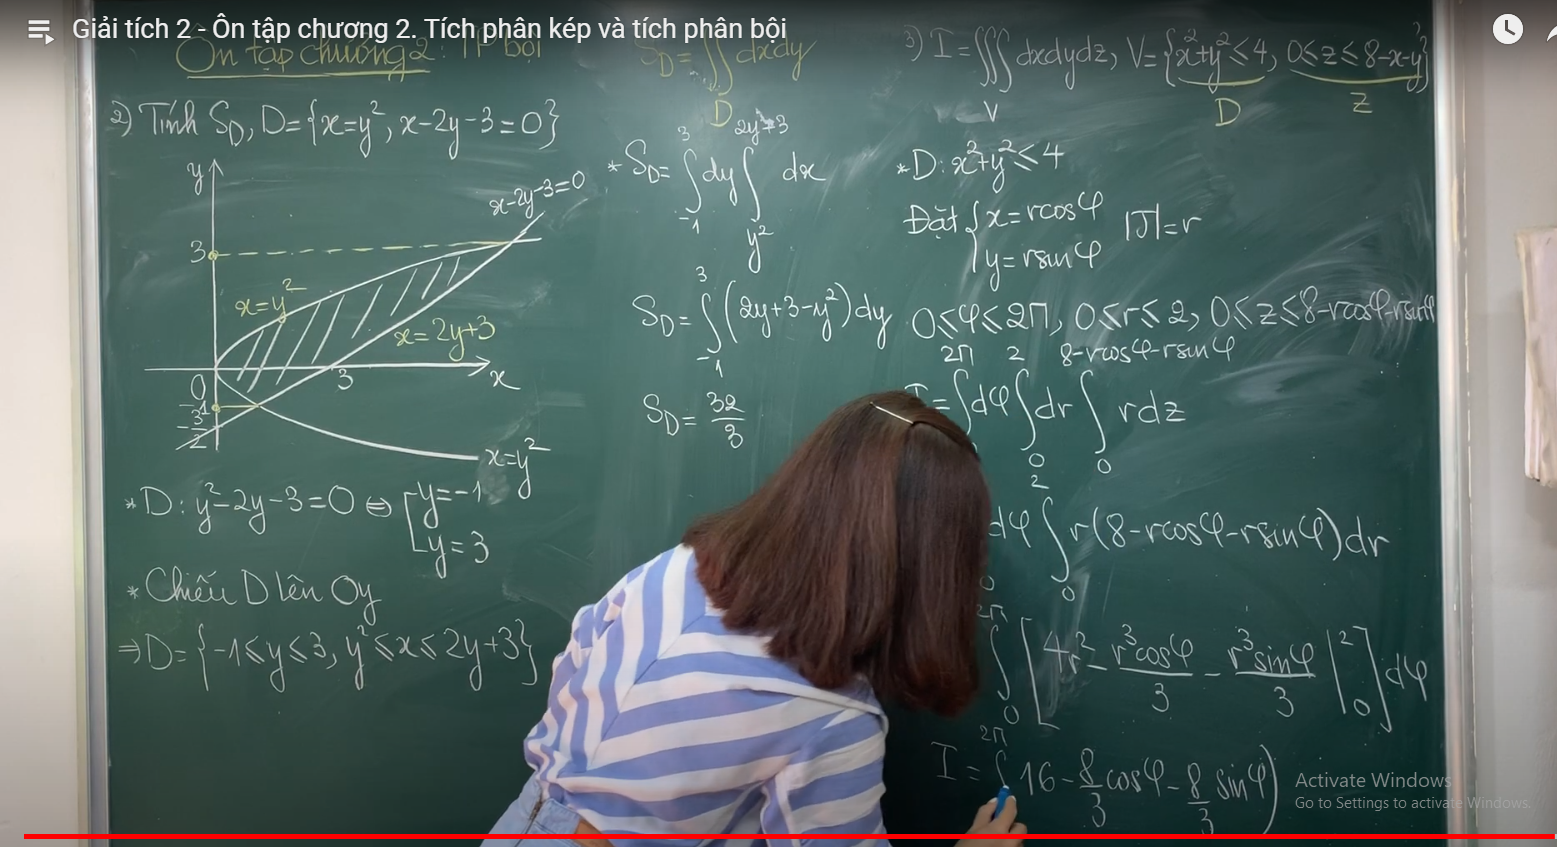 Giải tích 2 - Ôn tập chương 2. Tích phân kép và tích phân bội
Ôn tập chương 2: TP bội
2) Tính S_D, D={x=y², x-2y-3=0}
y
x-2y-3=0
3
x=y²
x=2y+3
0
3
x
-1
-3/2
x=y²
* D: y²-2y-3=0 ⇔ [y=-1
y=3
* Chiếu D lên Oy
⇒ D={-1≤y≤3, y²≤x≤2y+3}
S_D=∬_D dxdy
* S_D=∫_{-1}^{3} dy ∫_{y²}^{2y+3} dx
S_D=∫_{-1}^{3} (2y+3-y²)dy
S_D=32/3
3) I=∭_V dxdydz, V={x²+y²≤4, 0≤z≤8-x-y}
D
Z
* D: x²+y²≤4
Đặt {x=rcosφ
y=rsinφ |J|=r
0≤φ≤2π, 0≤r≤2, 0≤z≤8-rcosφ-rsinφ
I=∫^{2π} dφ ∫_0^2 dr ∫_0^{8-rcosφ-rsinφ} rdz
dφ ∫_0^2 r(8-rcosφ-rsinφ)dr
∫_0^{2π} [4r² - r³cosφ/3 - r³sinφ/3 |_0^2] dφ
I=∫^{2π} 16 - 8/3 cosφ - 8/3 sinφ)
Activate Windows
Go to Settings to activate Windows.